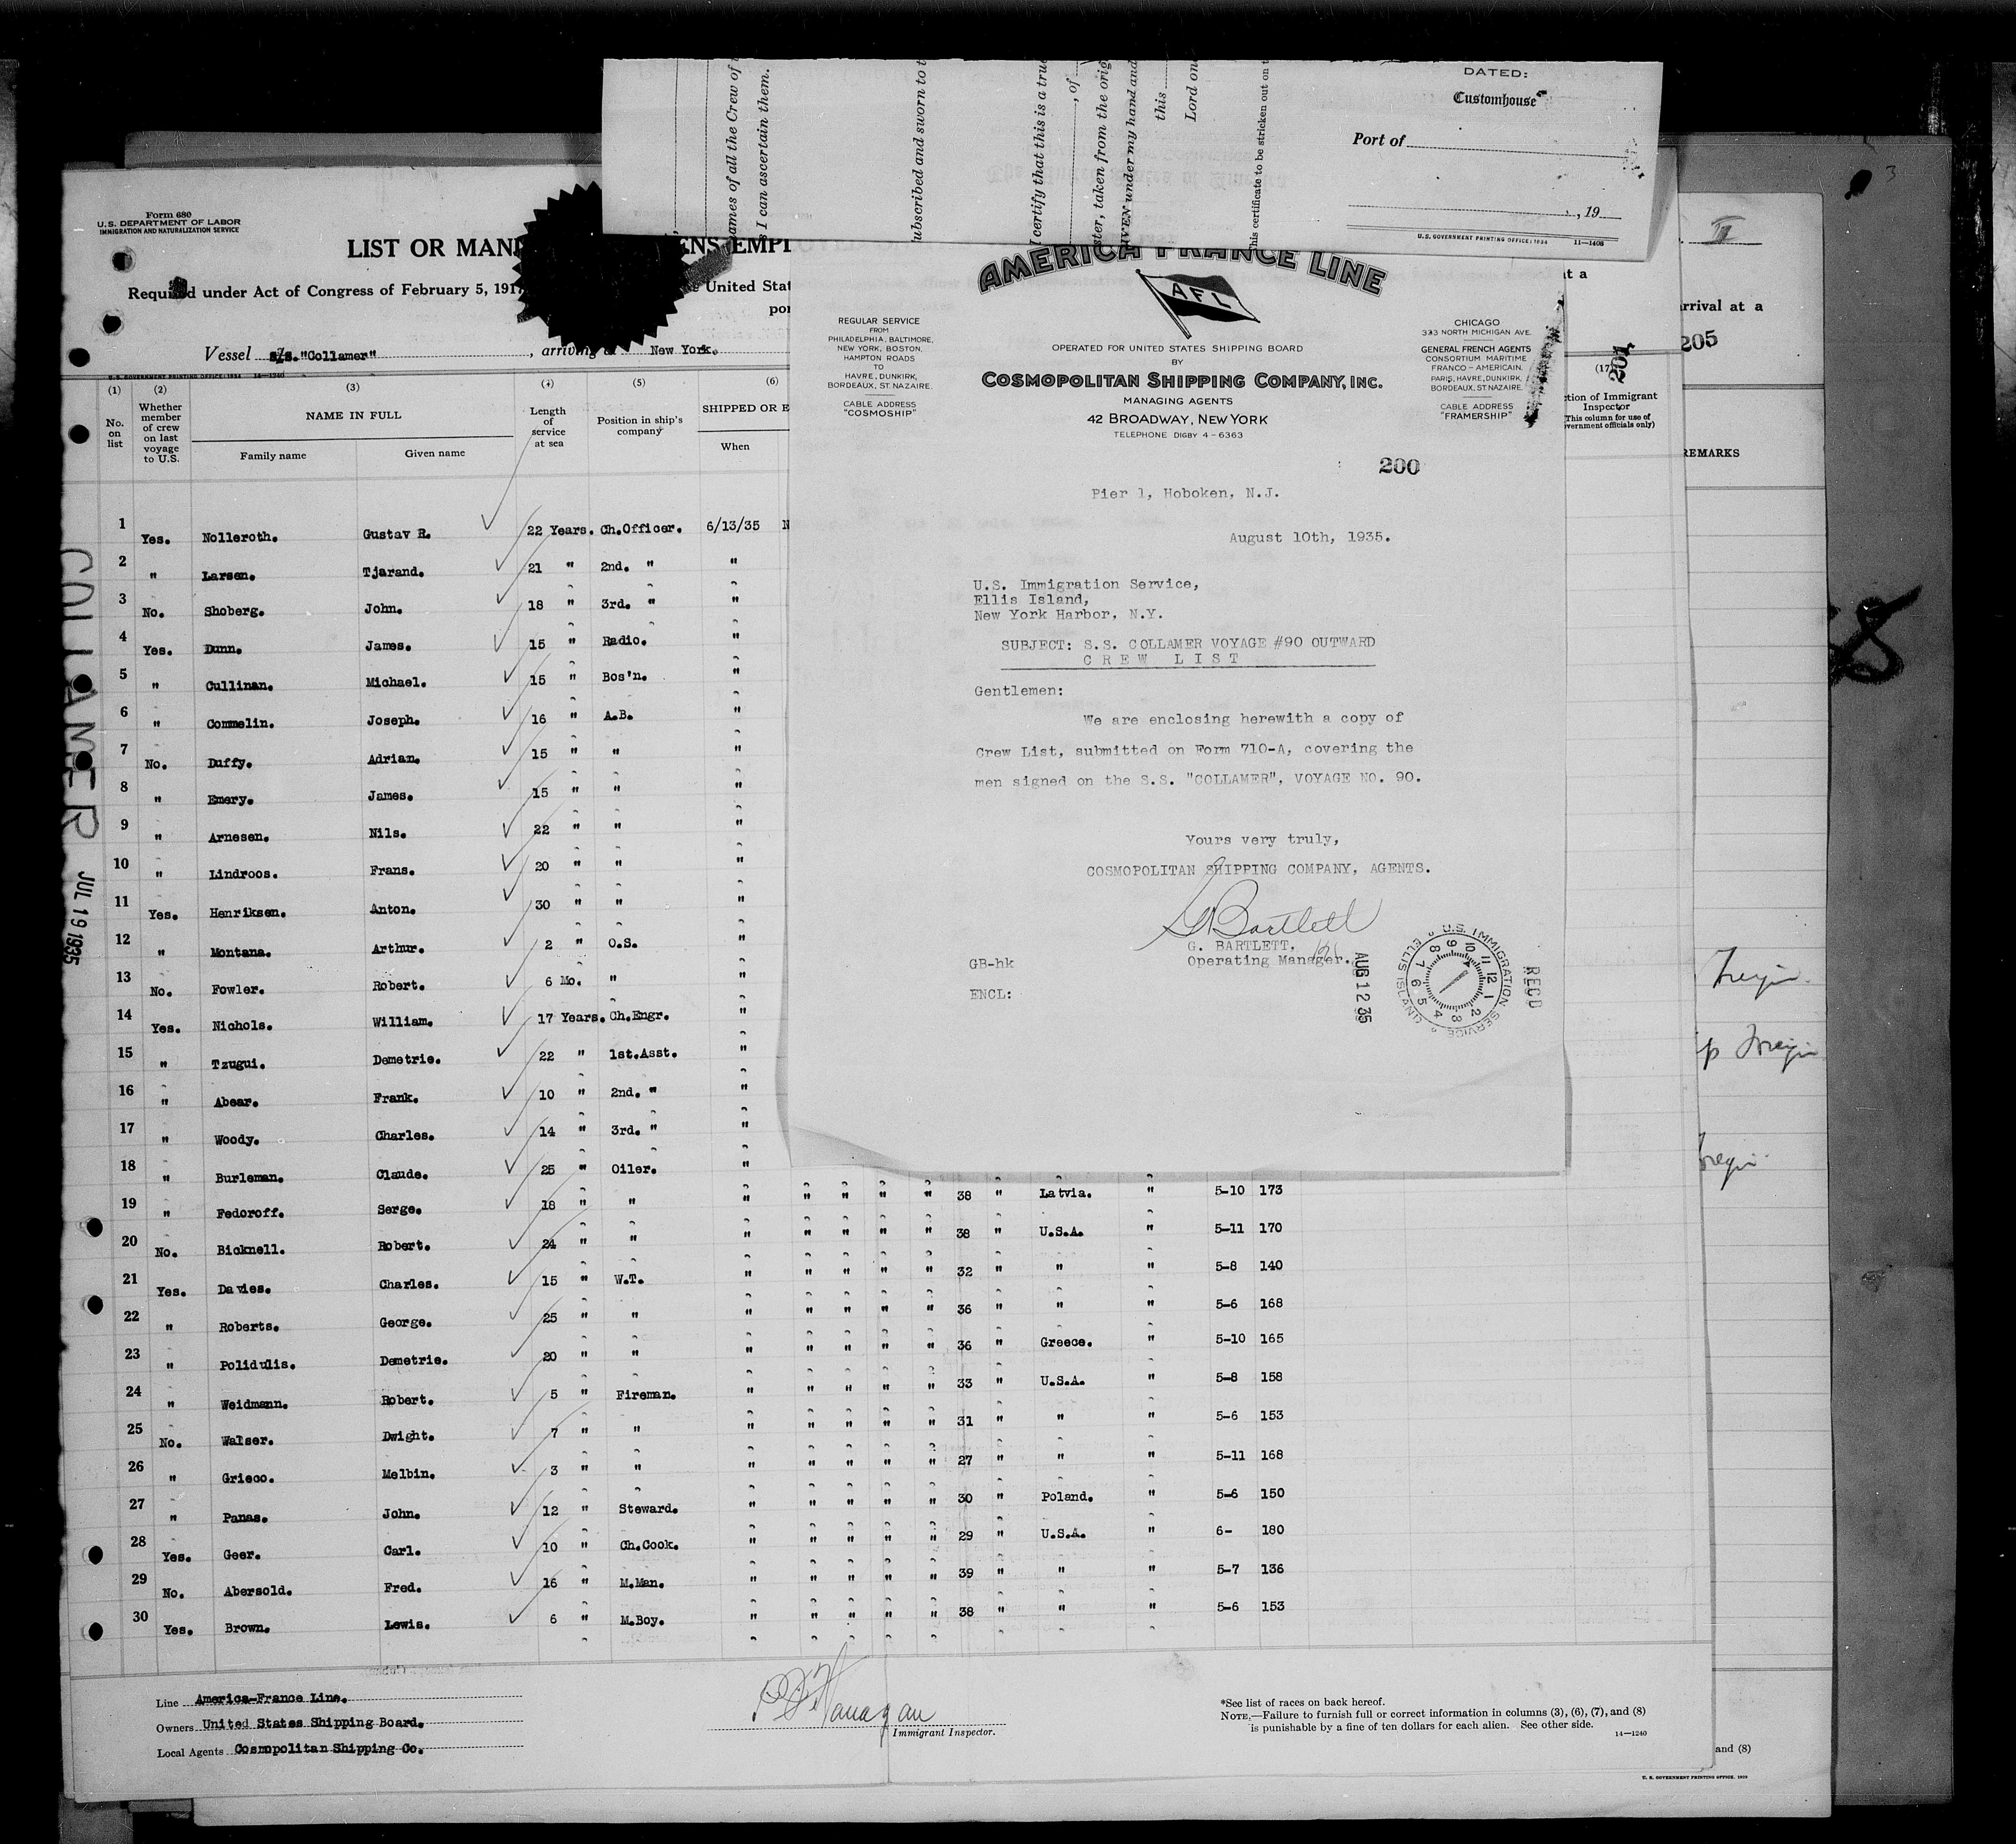 DATED:
Customhouse
Port of
, 19
U.S. GOVERNMENT PRINTING OFFICE: 1934 11—1408
ames of all the Crew of
s I can ascertain them.
ubscribed and sworn to
I certify that this is a true
, of
ster, taken from the orig
under my hand and
this
Lord one
This certificate to be stricken out on
Form 680
U.S. DEPARTMENT OF LABOR
IMMIGRATION AND NATURALIZATION SERVICE
LIST OR MANI ENS EMPL
Required under Act of Congress of February 5, 1917 United Stat
por
Vessel s/s. "Collamer", arriving at New York.
U.S. GOVERNMENT PRINTING OFFICE: 1934 14—1240
(1) (2) (3) (4) (5) (6)
No. on list
Whether member of crew on last voyage to U.S.
NAME IN FULL
Family name Given name
Length of service at sea
Position in ship's company
SHIPPED OR E
When
1 Yes. Nolleroth. Gustav R. 22 Years. Ch.Officer. 6/13/35 N
2 " Larsen. Tjarand. 21 " 2nd. " "
3 No. Shoberg. John. 18 " 3rd. " "
4 Yes. Dunn. James. 15 " Radio. "
5 " Cullinan. Michael. 15 " Bos'n. "
6 " Commelin. Joseph. 16 " A.B. "
7 No. Duffy. Adrian. 15 " " "
8 " Emery. James. 15 " " "
9 " Arnesen. Nils. 22 " " "
10 " Lindroos. Frans. 20 " " "
11 Yes. Henriksen. Anton. 30 " " "
12 " Montana. Arthur. 2 " O.S. "
13 No. Fowler. Robert. 6 Mo. " "
14 Yes. Nichols. William. 17 Years. Ch.Engr. "
15 " Tzugui. Demetrie. 22 " 1st.Asst. "
16 " Abear. Frank. 10 " 2nd. " "
17 " Woody. Charles. 14 " 3rd. " "
18 " Burleman. Claude. 25 " Oiler. "
19 " Fedoroff. Serge. 18 " " " " " " " 38 " Latvia. " 5-10 173
20 No. Bicknell. Robert. 24 " " " " " " " 38 " U.S.A. " 5-11 170
21 Yes. Davies. Charles. 15 " W.T. " " " " " 32 " " " 5-8 140
22 " Roberts. George. 25 " " " " " " " 36 " " " 5-6 168
23 " Polidulis. Demetrie. 20 " " " " " " " 36 " Greece. " 5-10 165
24 " Weidmann. Robert. 5 " Fireman. " " " " " 33 " U.S.A. " 5-8 158
25 No. Walser. Dwight. 7 " " " " " " " 31 " " " 5-6 153
26 " Grieco. Melbin. 3 " " " " " " " 27 " " " 5-11 168
27 " Panas. John. 12 " Steward. " " " " " 30 " Poland. " 5-6 150
28 Yes. Geer. Carl. 10 " Ch.Cook. " " " " " 29 " U.S.A. " 6- 180
29 No. Abersold. Fred. 16 " M.Man. " " " " " 39 " " " 5-7 136
30 Yes. Brown. Lewis. 6 " M.Boy. " " " " " 38 " " " 5-6 153
Line America-France Line.
Owners United States Shipping Board.
Local Agents Cosmopolitan Shipping Co.
Immigrant Inspector.
*See list of races on back hereof.
NOTE.—Failure to furnish full or correct information in columns (3), (6), (7), and (8)
is punishable by a fine of ten dollars for each alien. See other side.
14—1240
COLLAMER
JUL 19 1935
AMERICA FRANCE LINE
AFL
REGULAR SERVICE
FROM
PHILADELPHIA, BALTIMORE,
NEW YORK, BOSTON,
HAMPTON ROADS
TO
HAVRE, DUNKIRK,
BORDEAUX, ST. NAZAIRE.
CABLE ADDRESS
"COSMOSHIP"
OPERATED FOR UNITED STATES SHIPPING BOARD
BY
COSMOPOLITAN SHIPPING COMPANY, INC.
MANAGING AGENTS
42 BROADWAY, NEW YORK
TELEPHONE DIGBY 4-6363
CHICAGO
333 NORTH MICHIGAN AVE.
GENERAL FRENCH AGENTS
CONSORTIUM MARITIME
FRANCO-AMERICAIN.
PARIS, HAVRE, DUNKIRK,
BORDEAUX, ST. NAZAIRE.
CABLE ADDRESS
"FRAMERSHIP"
200
Pier 1, Hoboken, N.J.
August 10th, 1935.
U.S. Immigration Service,
Ellis Island,
New York Harbor, N.Y.
SUBJECT: S.S. COLLAMER VOYAGE #90 OUTWARD
CREW LIST
Gentlemen:
We are enclosing herewith a copy of
Crew List, submitted on Form 710-A, covering the
men signed on the S.S. "COLLAMER", VOYAGE NO. 90.
Yours very truly,
COSMOPOLITAN SHIPPING COMPANY, AGENTS.
G Bartlett
G. BARTLETT,
Operating Manager.
GB-hk
ENCL:
AUG 12 35
U.S. IMMIGRATION SERVICE ELLIS ISLAND
1 2 3 4 5 6 7 8 9 10 11 12
REC'D
t a
201
(17)
ction of Immigrant
Inspector
(This column for use of
vernment officials only)
II
rrival at a
205
REMARKS
3
and (8)
U. S. GOVERNMENT PRINTING OFFICE